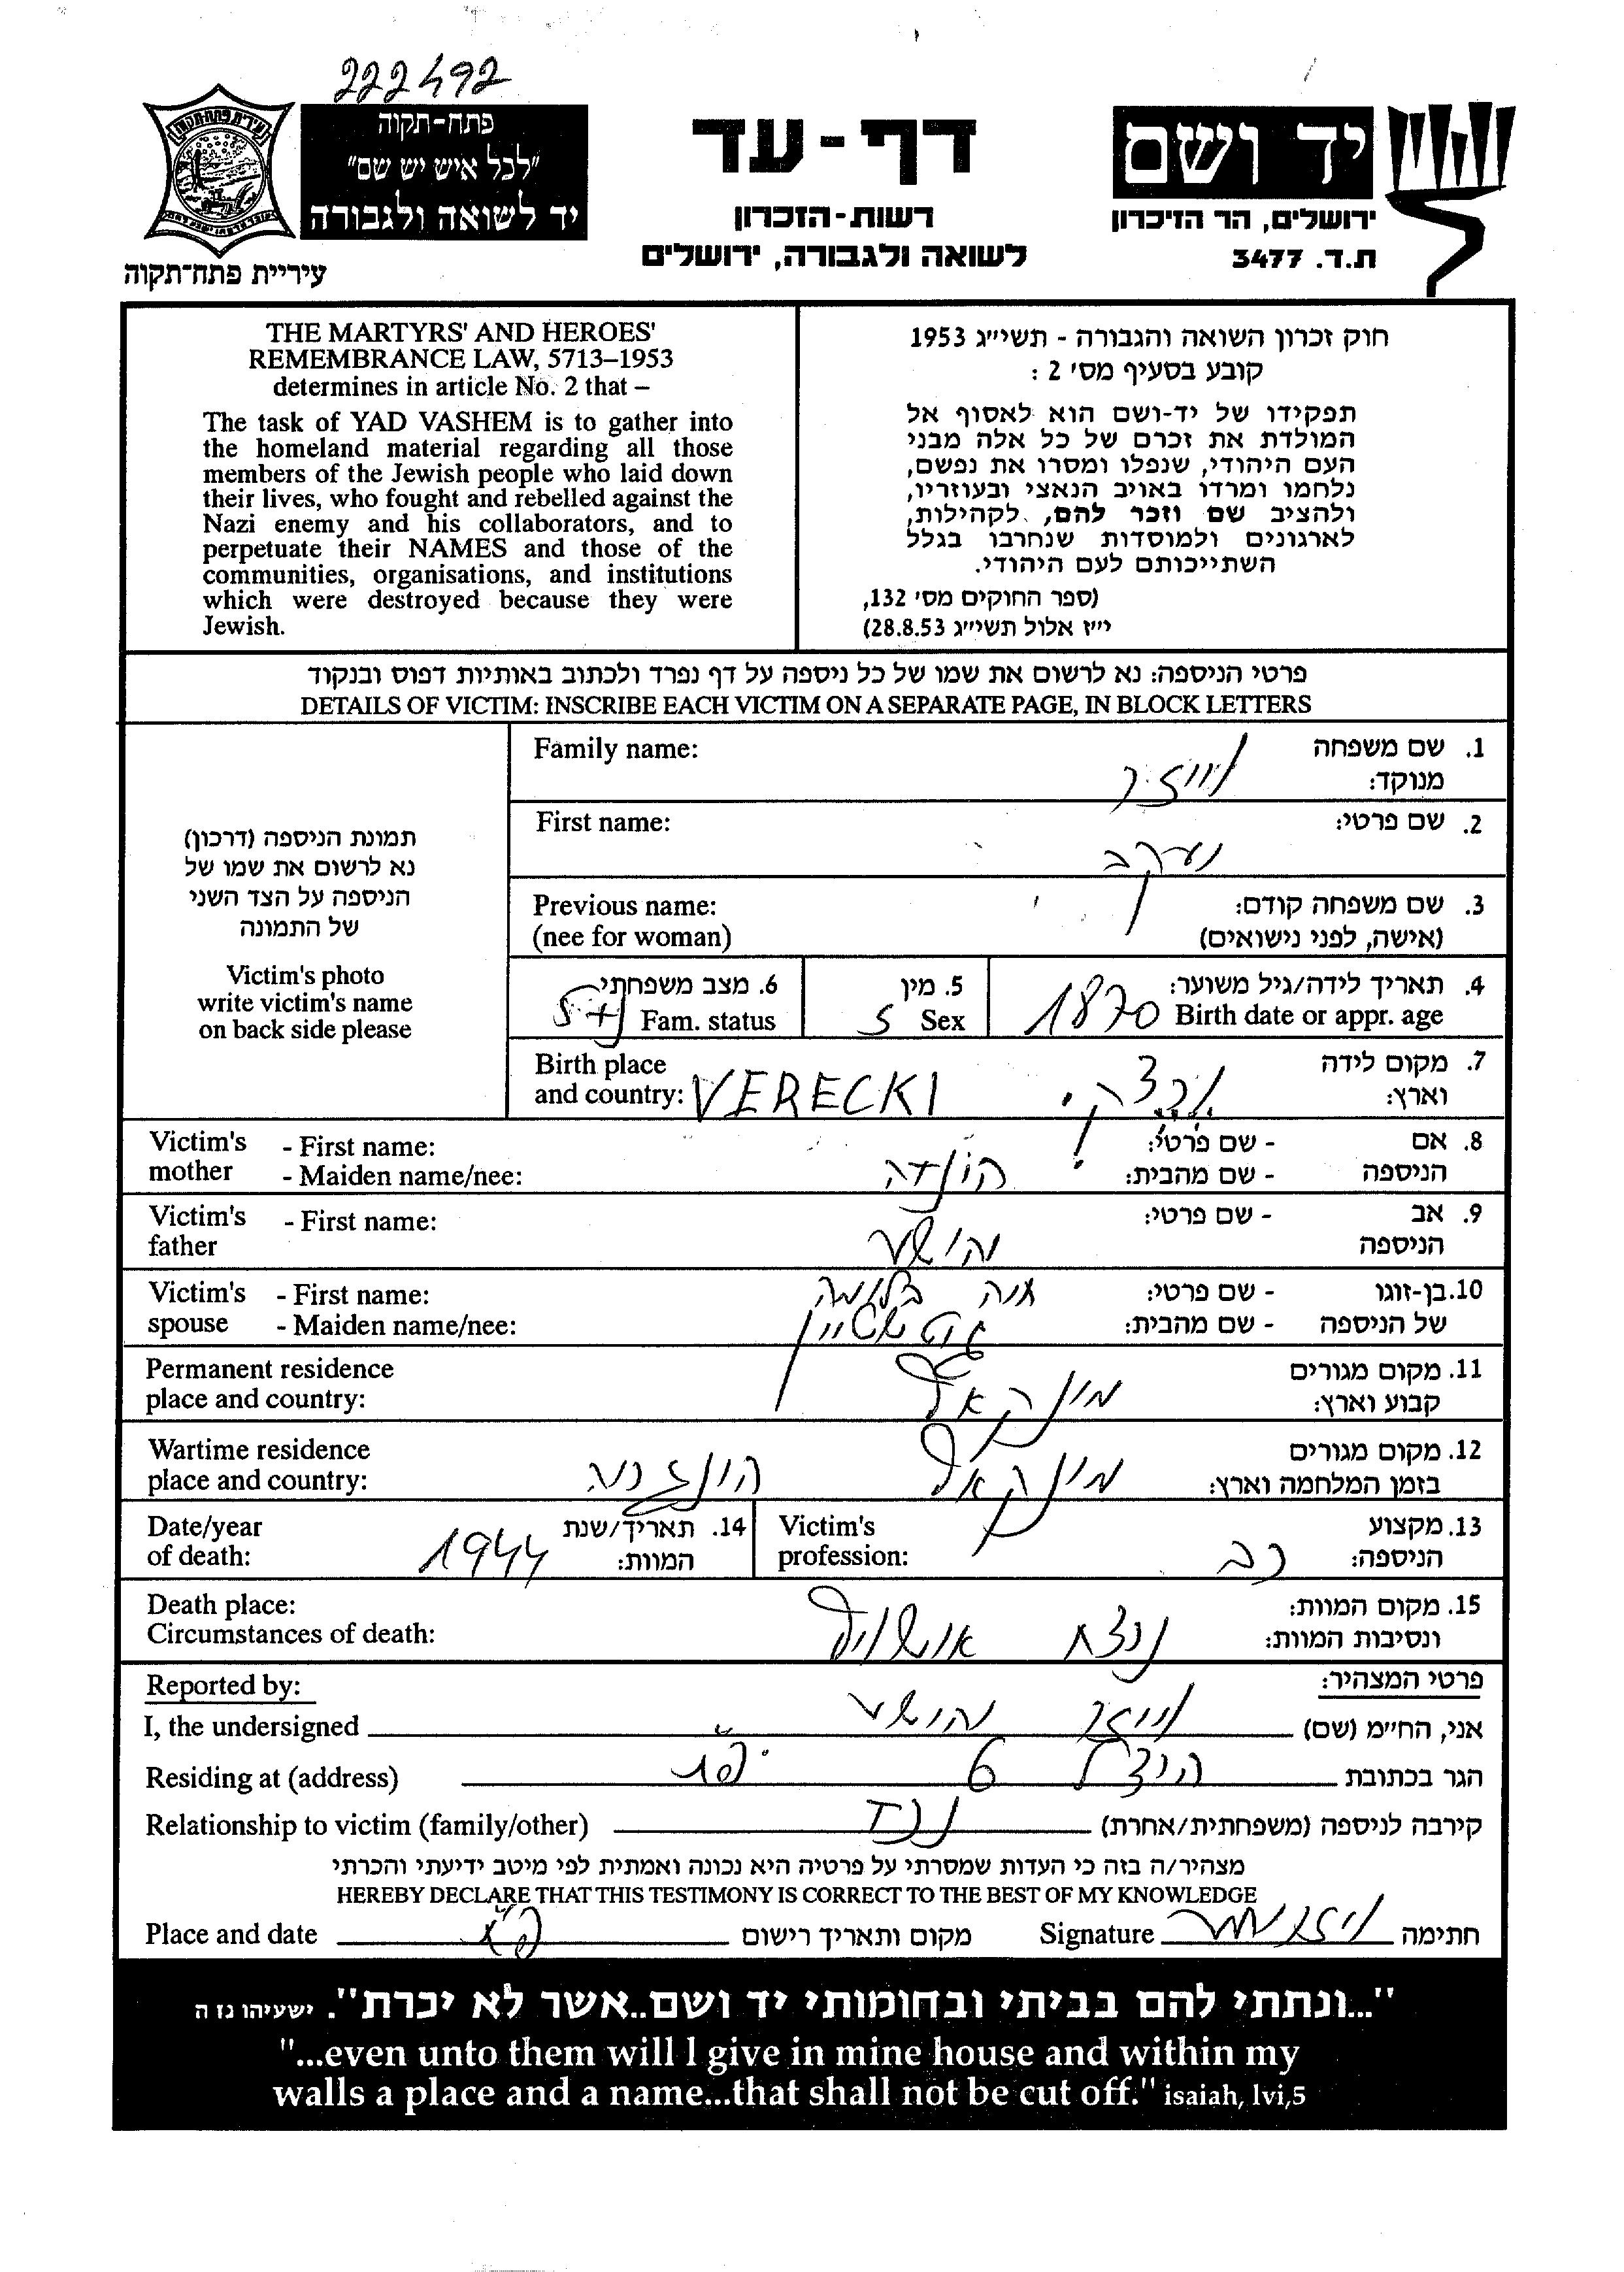 222492
פתח-תקוה
"לכל איש יש שם"
יד לשואה ולגבורה
עיריית פתח-תקוה
דף-עד
רשות-הזכרון
לשואה ולגבורה, ירושלים
יד ושם
ירושלים, הר הזיכרון
ת.ד. 3477
THE MARTYRS' AND HEROES'
REMEMBRANCE LAW, 5713–1953
determines in article No. 2 that –
The task of YAD VASHEM is to gather into
the homeland material regarding all those
members of the Jewish people who laid down
their lives, who fought and rebelled against the
Nazi enemy and his collaborators, and to
perpetuate their NAMES and those of the
communities, organisations, and institutions
which were destroyed because they were
Jewish.
חוק זכרון השואה והגבורה - תשי"ג 1953
קובע בסעיף מס' 2 :
תפקידו של יד-ושם הוא לאסוף אל
המולדת את זכרם של כל אלה מבני
העם היהודי, שנפלו ומסרו את נפשם,
נלחמו ומרדו באויב הנאצי ובעוזריו,
ולהציב שם וזכר להם, לקהילות,
לארגונים ולמוסדות שנחרבו בגלל
השתייכותם לעם היהודי.
(ספר החוקים מס' 132,
י"ז אלול תשי"ג 28.8.53)
פרטי הניספה: נא לרשום את שמו של כל ניספה על דף נפרד ולכתוב באותיות דפוס ובנקוד
DETAILS OF VICTIM: INSCRIBE EACH VICTIM ON A SEPARATE PAGE, IN BLOCK LETTERS
תמונת הניספה (דרכון)
נא לרשום את שמו של
הניספה על הצד השני
של התמונה
Victim's photo
write victim's name
on back side please
Family name: 1. שם משפחה
מנוקד:
First name: יעקב 2. שם פרטי:
Previous name: 3. שם משפחה קודם:
(nee for woman) (אישה, לפני נישואים)
4. תאריך לידה/גיל משוער:
1870 Birth date or appr. age
5. מין
Sex
6. מצב משפחתי
Fam. status
Birth place 7. מקום לידה
and country: VERECKI וארץ:
Victim's - First name: - שם פרטי: 8. אם
mother - Maiden name/nee: - שם מהבית: הניספה
Victim's - First name: - שם פרטי: 9. אב
father יהושע הניספה
Victim's - First name: בלומה - שם פרטי: 10. בן-זוגו
spouse - Maiden name/nee: - שם מהבית: של הניספה
Permanent residence 11. מקום מגורים
place and country: מונקאץ קבוע וארץ:
Wartime residence 12. מקום מגורים
place and country: מונקאץ הונגריה בזמן המלחמה וארץ:
Victim's 13. מקצוע
profession: רב הניספה:
Date/year 14. תאריך/שנת
of death: 1944 המוות:
Death place: 15. מקום המוות:
Circumstances of death: נרצח אושוויץ ונסיבות המוות:
Reported by: פרטי המצהיר:
I, the undersigned יהושע אני, הח"מ (שם)
Residing at (address) 6 הגר בכתובת
Relationship to victim (family/other) נכד קירבה לניספה (משפחתית/אחרת)
מצהיר/ה בזה כי העדות שמסרתי על פרטיה היא נכונה ואמתית לפי מיטב ידיעתי והכרתי
HEREBY DECLARE THAT THIS TESTIMONY IS CORRECT TO THE BEST OF MY KNOWLEDGE
Place and date מקום ותאריך רישום Signature חתימה
"...ונתתי להם בביתי ובחומותי יד ושם..אשר לא יכרת". ישעיהו נז ה
"...even unto them will I give in mine house and within my
walls a place and a name...that shall not be cut off." isaiah, lvi,5